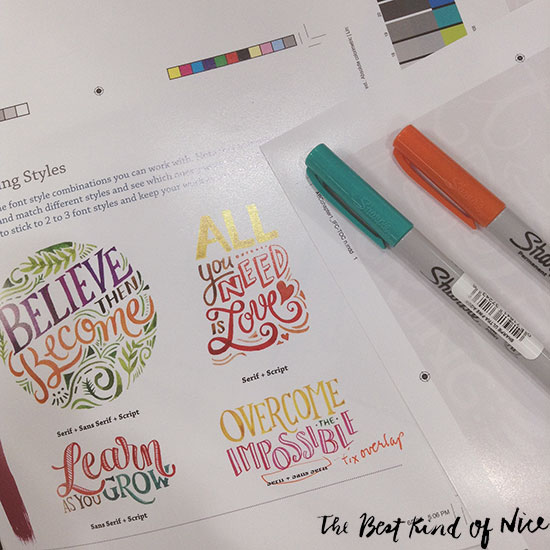 ing Styles
e font style combinations you can work with.
and match different styles and see which ones
to stick to 2 to 3 font styles and keep your work
BELIEVE
THEN
Become
Serif + Sans Serif + Script
ALL
you
NEED
is
Love
Serif + Script
Learn
AS YOU GROW
Sans Serif + Script
OVERCOME
THE
IMPOSSIBLE
Serif + Sans Serif
fix overlap
Sharpie
Sharpie
5:06 PM
The Best Kind of Nice